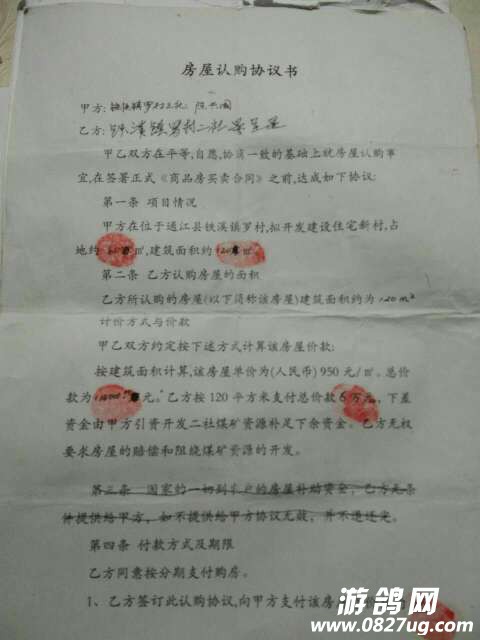 房屋认购协议书
甲方:
乙方:
甲乙双方在平等,自愿,协商一致的基础上就房屋认购事
宜,在签署正式《商品房买卖合同》之前,达成如下协议:
第一条 项目情况
甲方在位于通江县铁溪镇罗村,拟开发建设住宅新村,占
地约 ㎡,建筑面积约 ㎡.
第二条 乙方认购房屋的面积
乙方所认购的房屋(以下简称该房屋)建筑面积约为 120m²
计价方式与价款
甲乙双方约定按下述方式计算该房屋价款:
按建筑面积计算,该房屋单价为(人民币)950元/㎡。总价
款为 元。乙方按120平方米支付总价款6万元,下差
资金由甲方引资开发二社煤矿资源补足下余资金。乙方无权
要求房屋的赔偿和阻绕煤矿资源的开发。
第三条 国家的一切到农户的房屋补助资金,乙方无条
件提供给甲方,如不提供给甲方协议无效,并不退还先。
第四条 付款方式及期限
乙方同意按分期支付购房。
1、乙方签订此认购协议,向甲方支付该房
游鸽网
www.0827ug.com